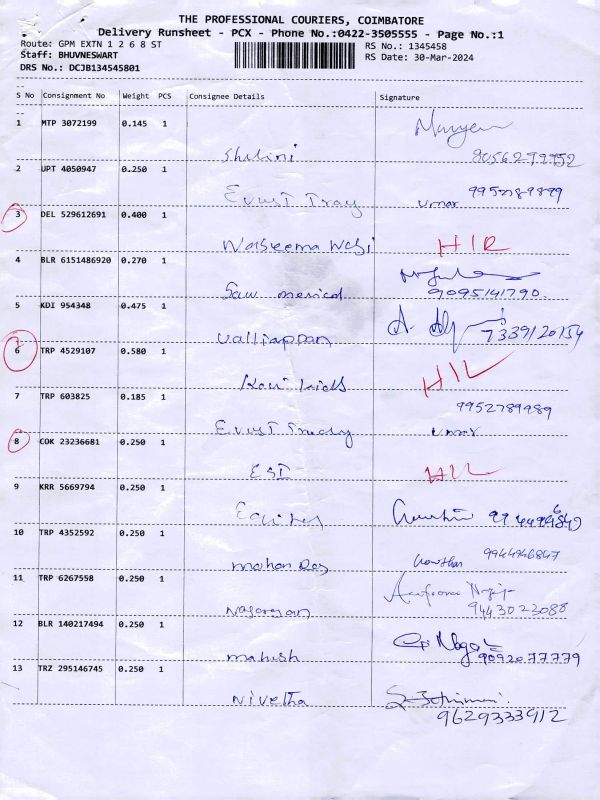 THE PROFESSIONAL COURIERS, COIMBATORE
Delivery Runsheet - PCX - Phone No.:0422-3505555 - Page No.:1
Route: GPM EXTN 1 2 6 8 ST RS No.: 1345458
Staff: BHUVNESWART RS Date: 30-Mar-2024
DRS No.: DCJB134545801
S No Consignment No Weight PCS Consignee Details Signature
1 MTP 3072199 0.145 1
Shalini
2 UPT 4050947 0.250 1 9952789889
Evust Tray umar
3 DEL 529612691 0.400 1
Waseema Wasi
4 BLR 6151486920 0.270 1
Saw medical 9095141790
5 KDI 954348 0.475 1
Valliappan 7339120154
6 TRP 4529107 0.580 1
7 TRP 603825 0.185 1 9952789989
umar
8 COK 23236681 0.250 1
ESI
9 KRR 5669794 0.250 1
Equites
10 TRP 4352592 0.250 1 9944946847
Mohan Das
11 TRP 6267558 0.250 1
Nagarajan 9443023088
12 BLR 140217494 0.250 1
Mahish 9092077779
13 TRZ 295146745 0.250 1
Nivetha 9629333912